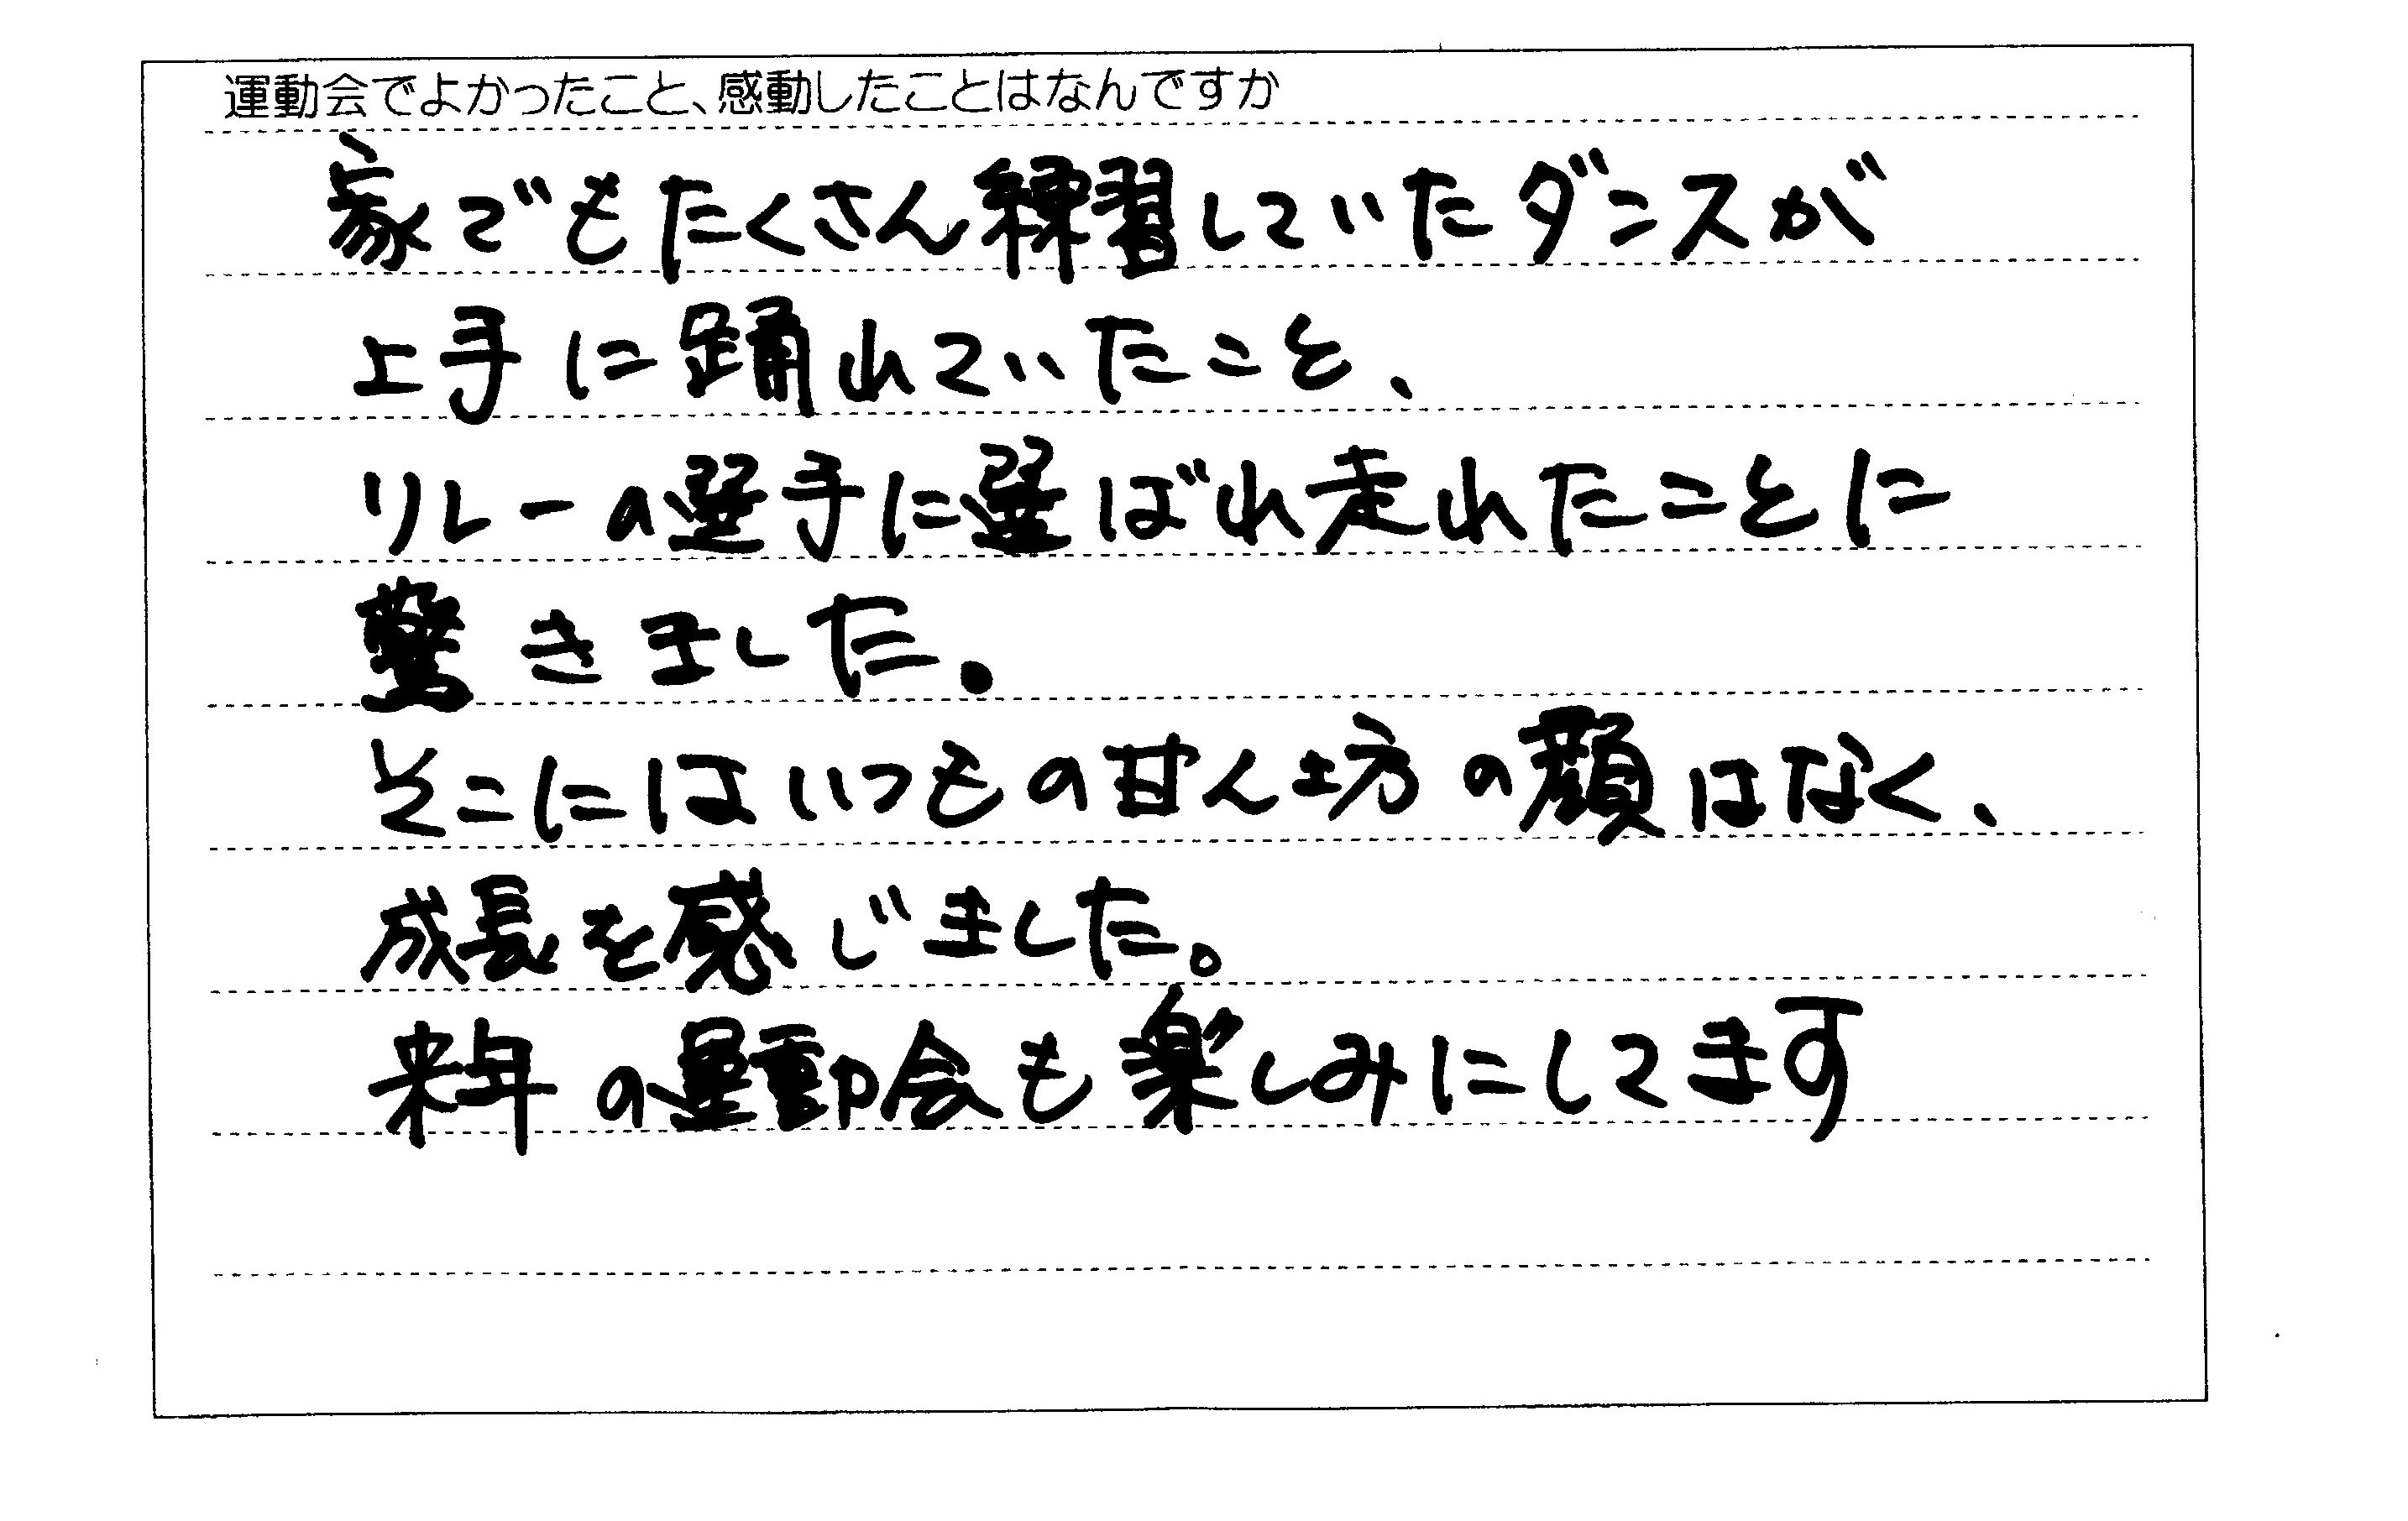 運動会でよかったこと、感動したことはなんですか
家でもたくさん練習していたダンスが
上手に踊れていたこと、
リレーの選手に選ばれ走れたことに
驚きました。
そこにはいつもの甘ん坊の顔はなく、
成長を感じました。
来年の運動会も楽しみにしてます